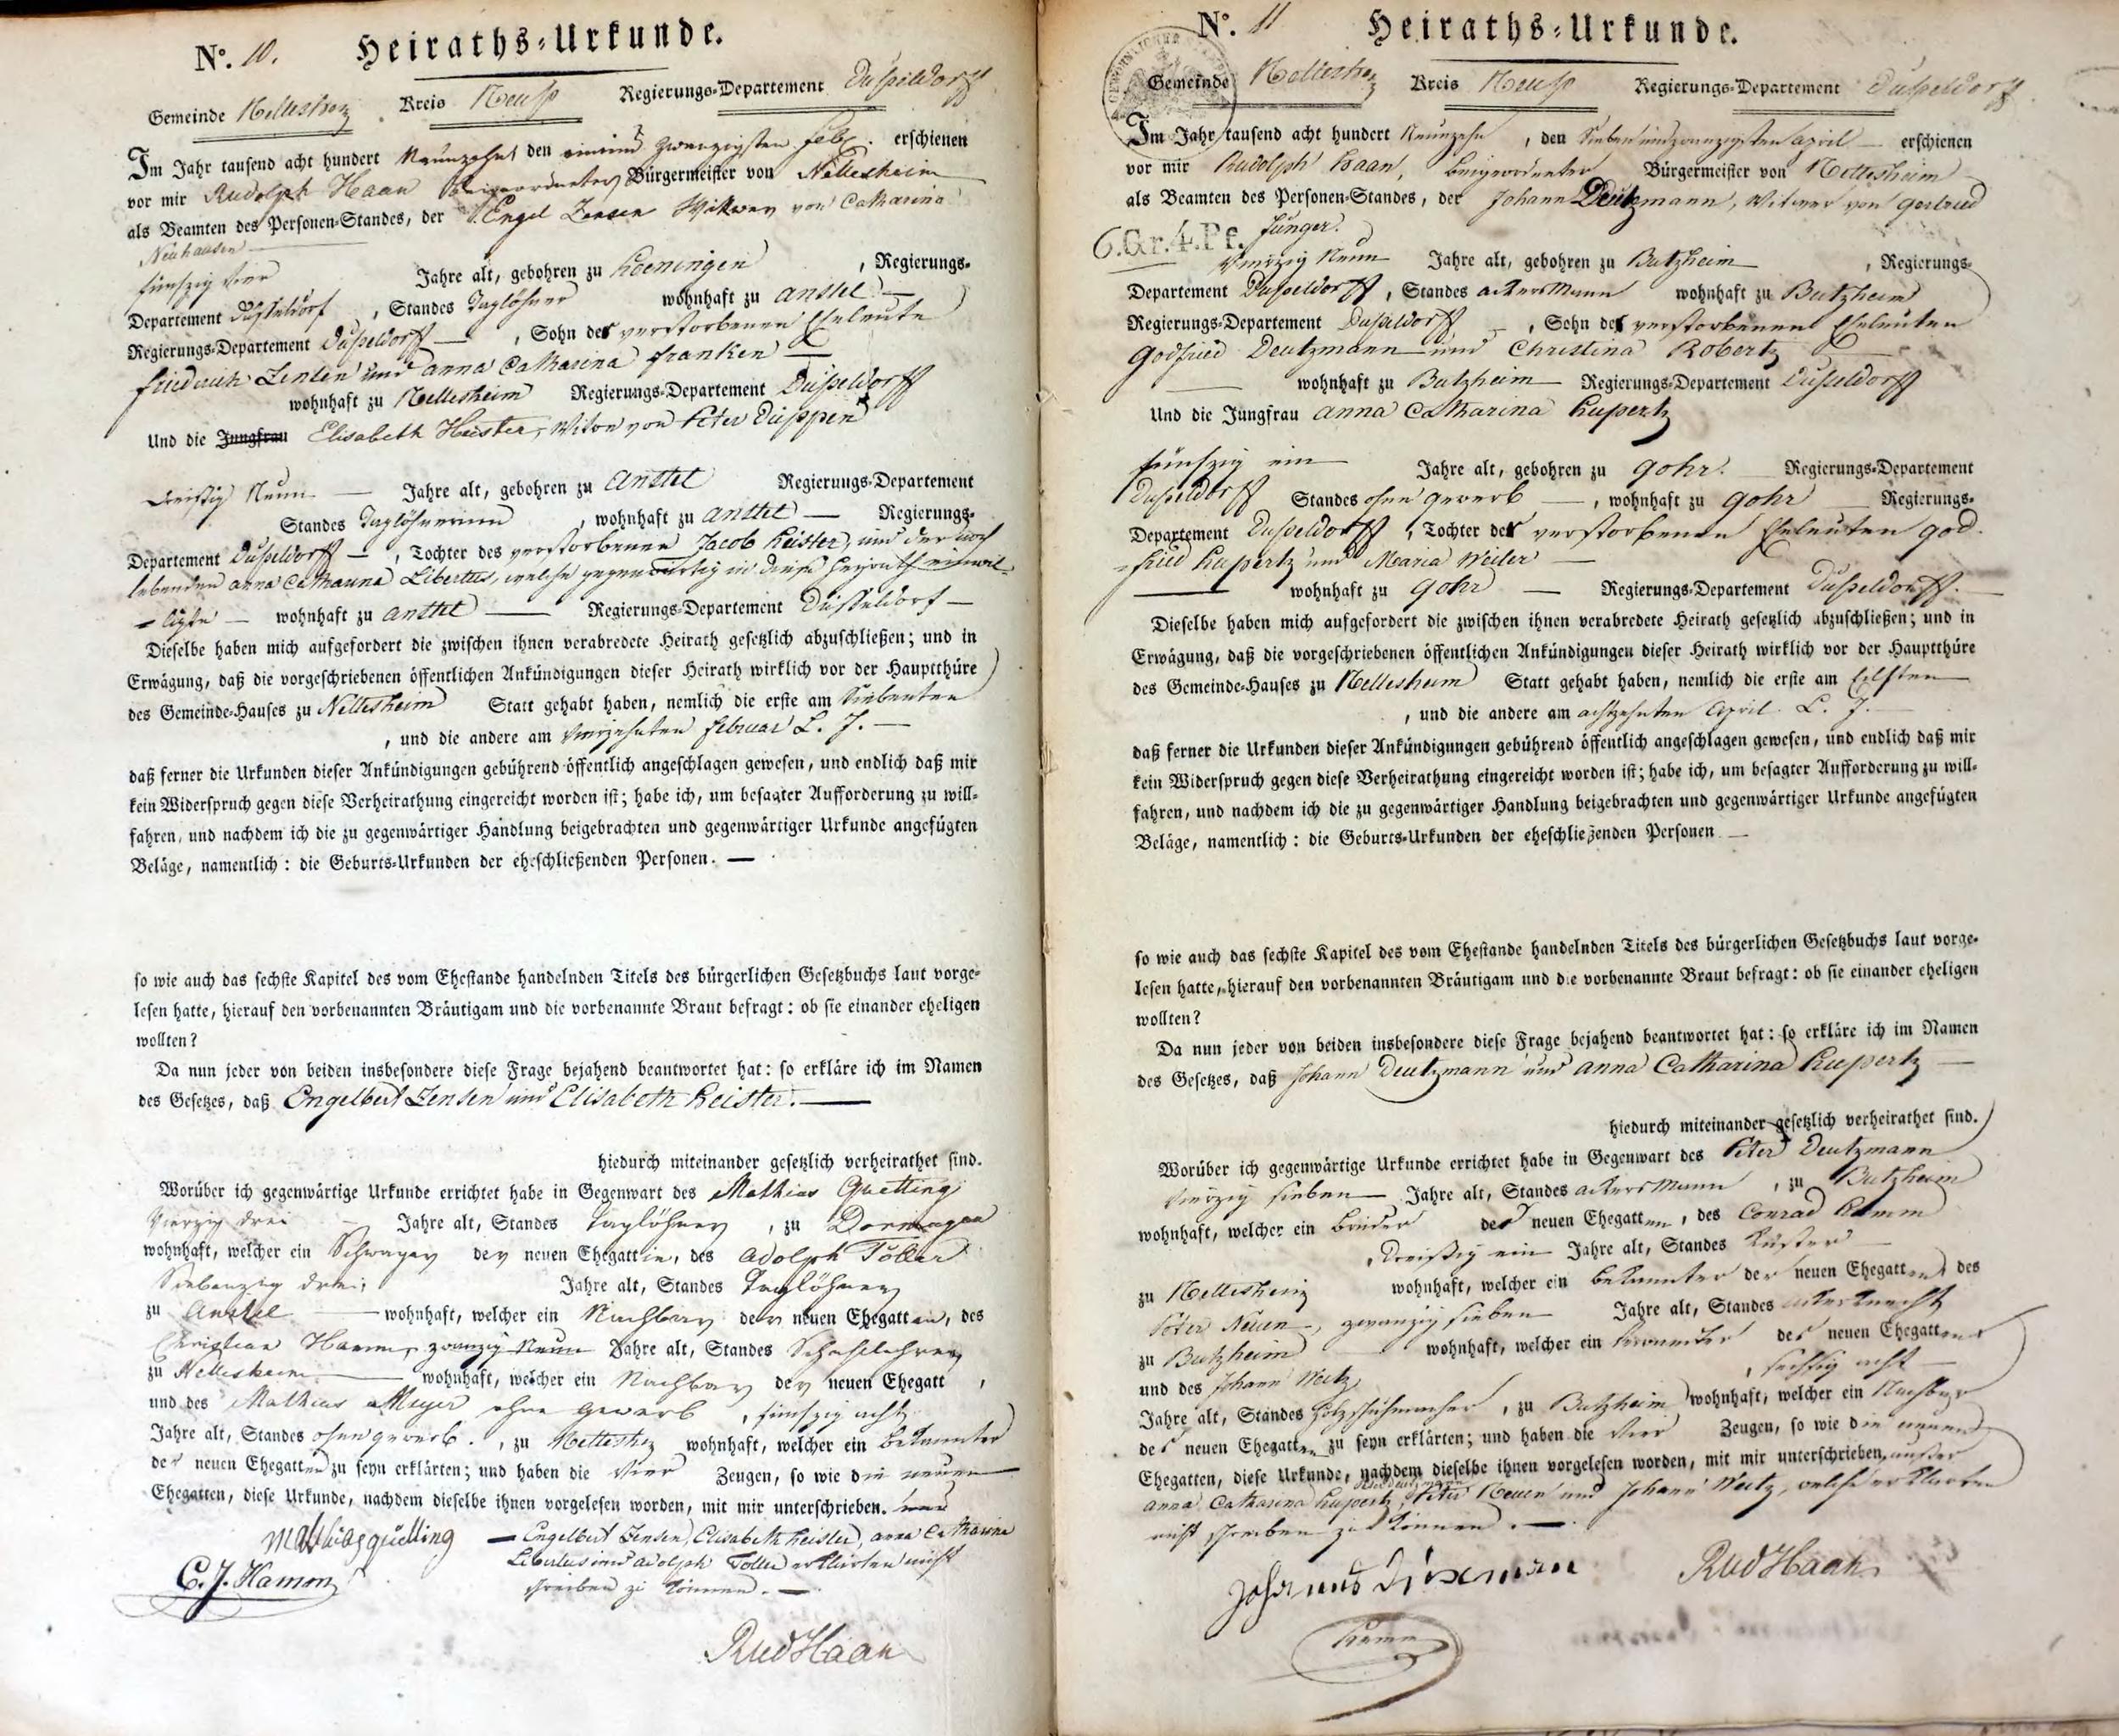 N°. 10. Heiraths-Urkunde.
Gemeinde Nettesheim Kreis Neuss Regierungs-Departement Dusseldorff
Im Jahr tausend acht hundert Neunzehn den einund zwanzigsten Feb. erschienen
vor mir Rudolph Haan Beigeordneter Bürgermeister von Nettesheim
als Beamten des Personen-Standes, der Engel Jensen Wittwer von Catharina
Neuhausen
fünfzig vier Jahre alt, gebohren zu Hoeningen, Regierungs-
Departement Düsseldorf, Standes Taglöhner wohnhaft zu anstel
Regierungs-Departement Dusseldorff, Sohn der verstorbenen Eheleute
Friedrich Jensen und anna Catharina Franken
wohnhaft zu Nettesheim Regierungs-Departement Düsseldorff
Und die Jungfrau Elisabeth Heister, Witwe von Peter Düppen
dreißig Neun Jahre alt, gebohren zu anstel Regierungs-Departement
Standes Taglöhnerinn, wohnhaft zu anstel Regierungs-
Departement Dusseldorff, Tochter des verstorbenen Jacob Heister, und der noch
lebenden anna Catharina Libertus, welche gegenwärtig in diese Heyrath einwil-
ligte wohnhaft zu anstel Regierungs-Departement Düsseldorf
Dieselbe haben mich aufgefordert die zwischen ihnen verabredete Heirath gesetzlich abzuschließen; und in
Erwägung, daß die vorgeschriebenen öffentlichen Ankündigungen dieser Heirath wirklich vor der Hauptthüre
des Gemeinde-Hauses zu Nettesheim Statt gehabt haben, nemlich die erste am Siebenten
, und die andere am vierzehnten februar L. J.
daß ferner die Urkunden dieser Ankündigungen gebührend öffentlich angeschlagen gewesen, und endlich daß mir
kein Widerspruch gegen diese Verheirathung eingereicht worden ist; habe ich, um besagter Aufforderung zu will-
fahren, und nachdem ich die zu gegenwärtiger Handlung beigebrachten und gegenwärtiger Urkunde angefügten
Beläge, namentlich: die Geburts-Urkunden der eheschließenden Personen. —
so wie auch das sechste Kapitel des vom Ehestande handelnden Titels des bürgerlichen Gesetzbuchs laut vorge-
lesen hatte, hierauf den vorbenannten Bräutigam und die vorbenannte Braut befragt: ob sie einander eheligen
wollten?
Da nun jeder von beiden insbesondere diese Frage bejahend beantwortet hat: so erkläre ich im Namen
des Gesetzes, daß Engelbert Jensen und Elisabeth Heister.
hiedurch miteinander gesetzlich verheirathet sind.
Worüber ich gegenwärtige Urkunde errichtet habe in Gegenwart des Mathias Quetting
Vierzig drei Jahre alt, Standes Taglöhner, zu Dormagen
wohnhaft, welcher ein Schwager der neuen Ehegattin, des Adolph Toller
Siebenzig drei Jahre alt, Standes Taglöhner
zu Anstel wohnhaft, welcher ein Nachbar der neuen Ehegatten, des
Christian Hamon, zwanzig Neun Jahre alt, Standes Schullehrer
zu Nettesheim wohnhaft, welcher ein Nachbar der neuen Ehegatt,
und des Mathias Meyer ohne Gewerb, fünfzig acht
Jahre alt, Standes ohne gewerb., zu Nettesheim wohnhaft, welcher ein Bekannter
der neuen Ehegatten zu seyn erklärten; und haben die vier Zeugen, so wie die neuen
Ehegatten, diese Urkunde, nachdem dieselbe ihnen vorgelesen worden, mit mir unterschrieben.
Engelbert Jensen, Elisabeth Heister, anna Catharina
Libertus und adolph Toller erklärten nicht
schreiben zu können.
Mathias quetting
C. J. Hamon
Rud Haan
N°. 11 Heiraths-Urkunde.
Gemeinde Nettesheim Kreis Neuss Regierungs-Departement Dusseldorff
Im Jahr tausend acht hundert Neunzehn, den Siebenundzwanzigsten april erschienen
vor mir Rudolph Haan, beigeordneter Bürgermeister von Nettesheim
als Beamten des Personen-Standes, der Johann Deutzmann, Witwer von gertrud
6.Gr.4.Pf. Junger.
Vierzig Neun Jahre alt, gebohren zu Butzheim, Regierungs-
Departement Dusseldorff, Standes ackersmann wohnhaft zu Butzheim
Regierungs-Departement Dusseldorff, Sohn der verstorbenen Eheleuten
Godfried Deutzmann und Christina Robertz
wohnhaft zu Butzheim Regierungs-Departement Dusseldorff
Und die Jungfrau anna Catharina Rupertz
fünfzig ein Jahre alt, gebohren zu gohr. Regierungs-Departement
Dusseldorff Standes ohne gewerb, wohnhaft zu gohr Regierungs-
Departement Dusseldorff, Tochter der verstorbenen Eheleuten god-
fried Rupertz und Maria Weiler
wohnhaft zu gohr Regierungs-Departement Dusseldorff.
Dieselbe haben mich aufgefordert die zwischen ihnen verabredete Heirath gesetzlich abzuschließen; und in
Erwägung, daß die vorgeschriebenen öffentlichen Ankündigungen dieser Heirath wirklich vor der Hauptthüre
des Gemeinde-Hauses zu Nettesheim Statt gehabt haben, nemlich die erste am Eilften
, und die andere am achtzehnten April L. J.
daß ferner die Urkunden dieser Ankündigungen gebührend öffentlich angeschlagen gewesen, und endlich daß mir
kein Widerspruch gegen diese Verheirathung eingereicht worden ist; habe ich, um besagter Aufforderung zu will-
fahren, und nachdem ich die zu gegenwärtiger Handlung beigebrachten und gegenwärtiger Urkunde angefügten
Beläge, namentlich: die Geburts-Urkunden der eheschließenden Personen —
so wie auch das sechste Kapitel des vom Ehestande handelnden Titels des bürgerlichen Gesetzbuchs laut vorge-
lesen hatte, hierauf den vorbenannten Bräutigam und die vorbenannte Braut befragt: ob sie einander eheligen
wollten?
Da nun jeder von beiden insbesondere diese Frage bejahend beantwortet hat: so erkläre ich im Namen
des Gesetzes, daß Johann Deutzmann und anna Catharina Rupertz
hiedurch miteinander gesetzlich verheirathet sind.
Worüber ich gegenwärtige Urkunde errichtet habe in Gegenwart des Peter Deutzmann
Vierzig sieben Jahre alt, Standes ackersmann, zu Butzheim
wohnhaft, welcher ein Bruder des neuen Ehegatten, des Conrad Hamm
dreißig ein Jahre alt, Standes Küster
zu Nettesheim wohnhaft, welcher ein bekannter der neuen Ehegatten des
Peter Neuen, zwanzig sieben Jahre alt, Standes ackerknecht
zu Butzheim wohnhaft, welcher ein bekannter der neuen Ehegatten
und des Johann Weitz, sechszig acht
Jahre alt, Standes Holzschuhmacher, zu Butzheim wohnhaft, welcher ein Nachbar
der neuen Ehegatten zu seyn erklärten; und haben die vier Zeugen, so wie die neuen
Ehegatten, diese Urkunde, nachdem dieselbe ihnen vorgelesen worden, mit mir unterschrieben, außer
anna Catharina Rupertz, Peter Neuen und Johann Weitz, welche erklärten
nicht schreiben zu können.
Rud Haan